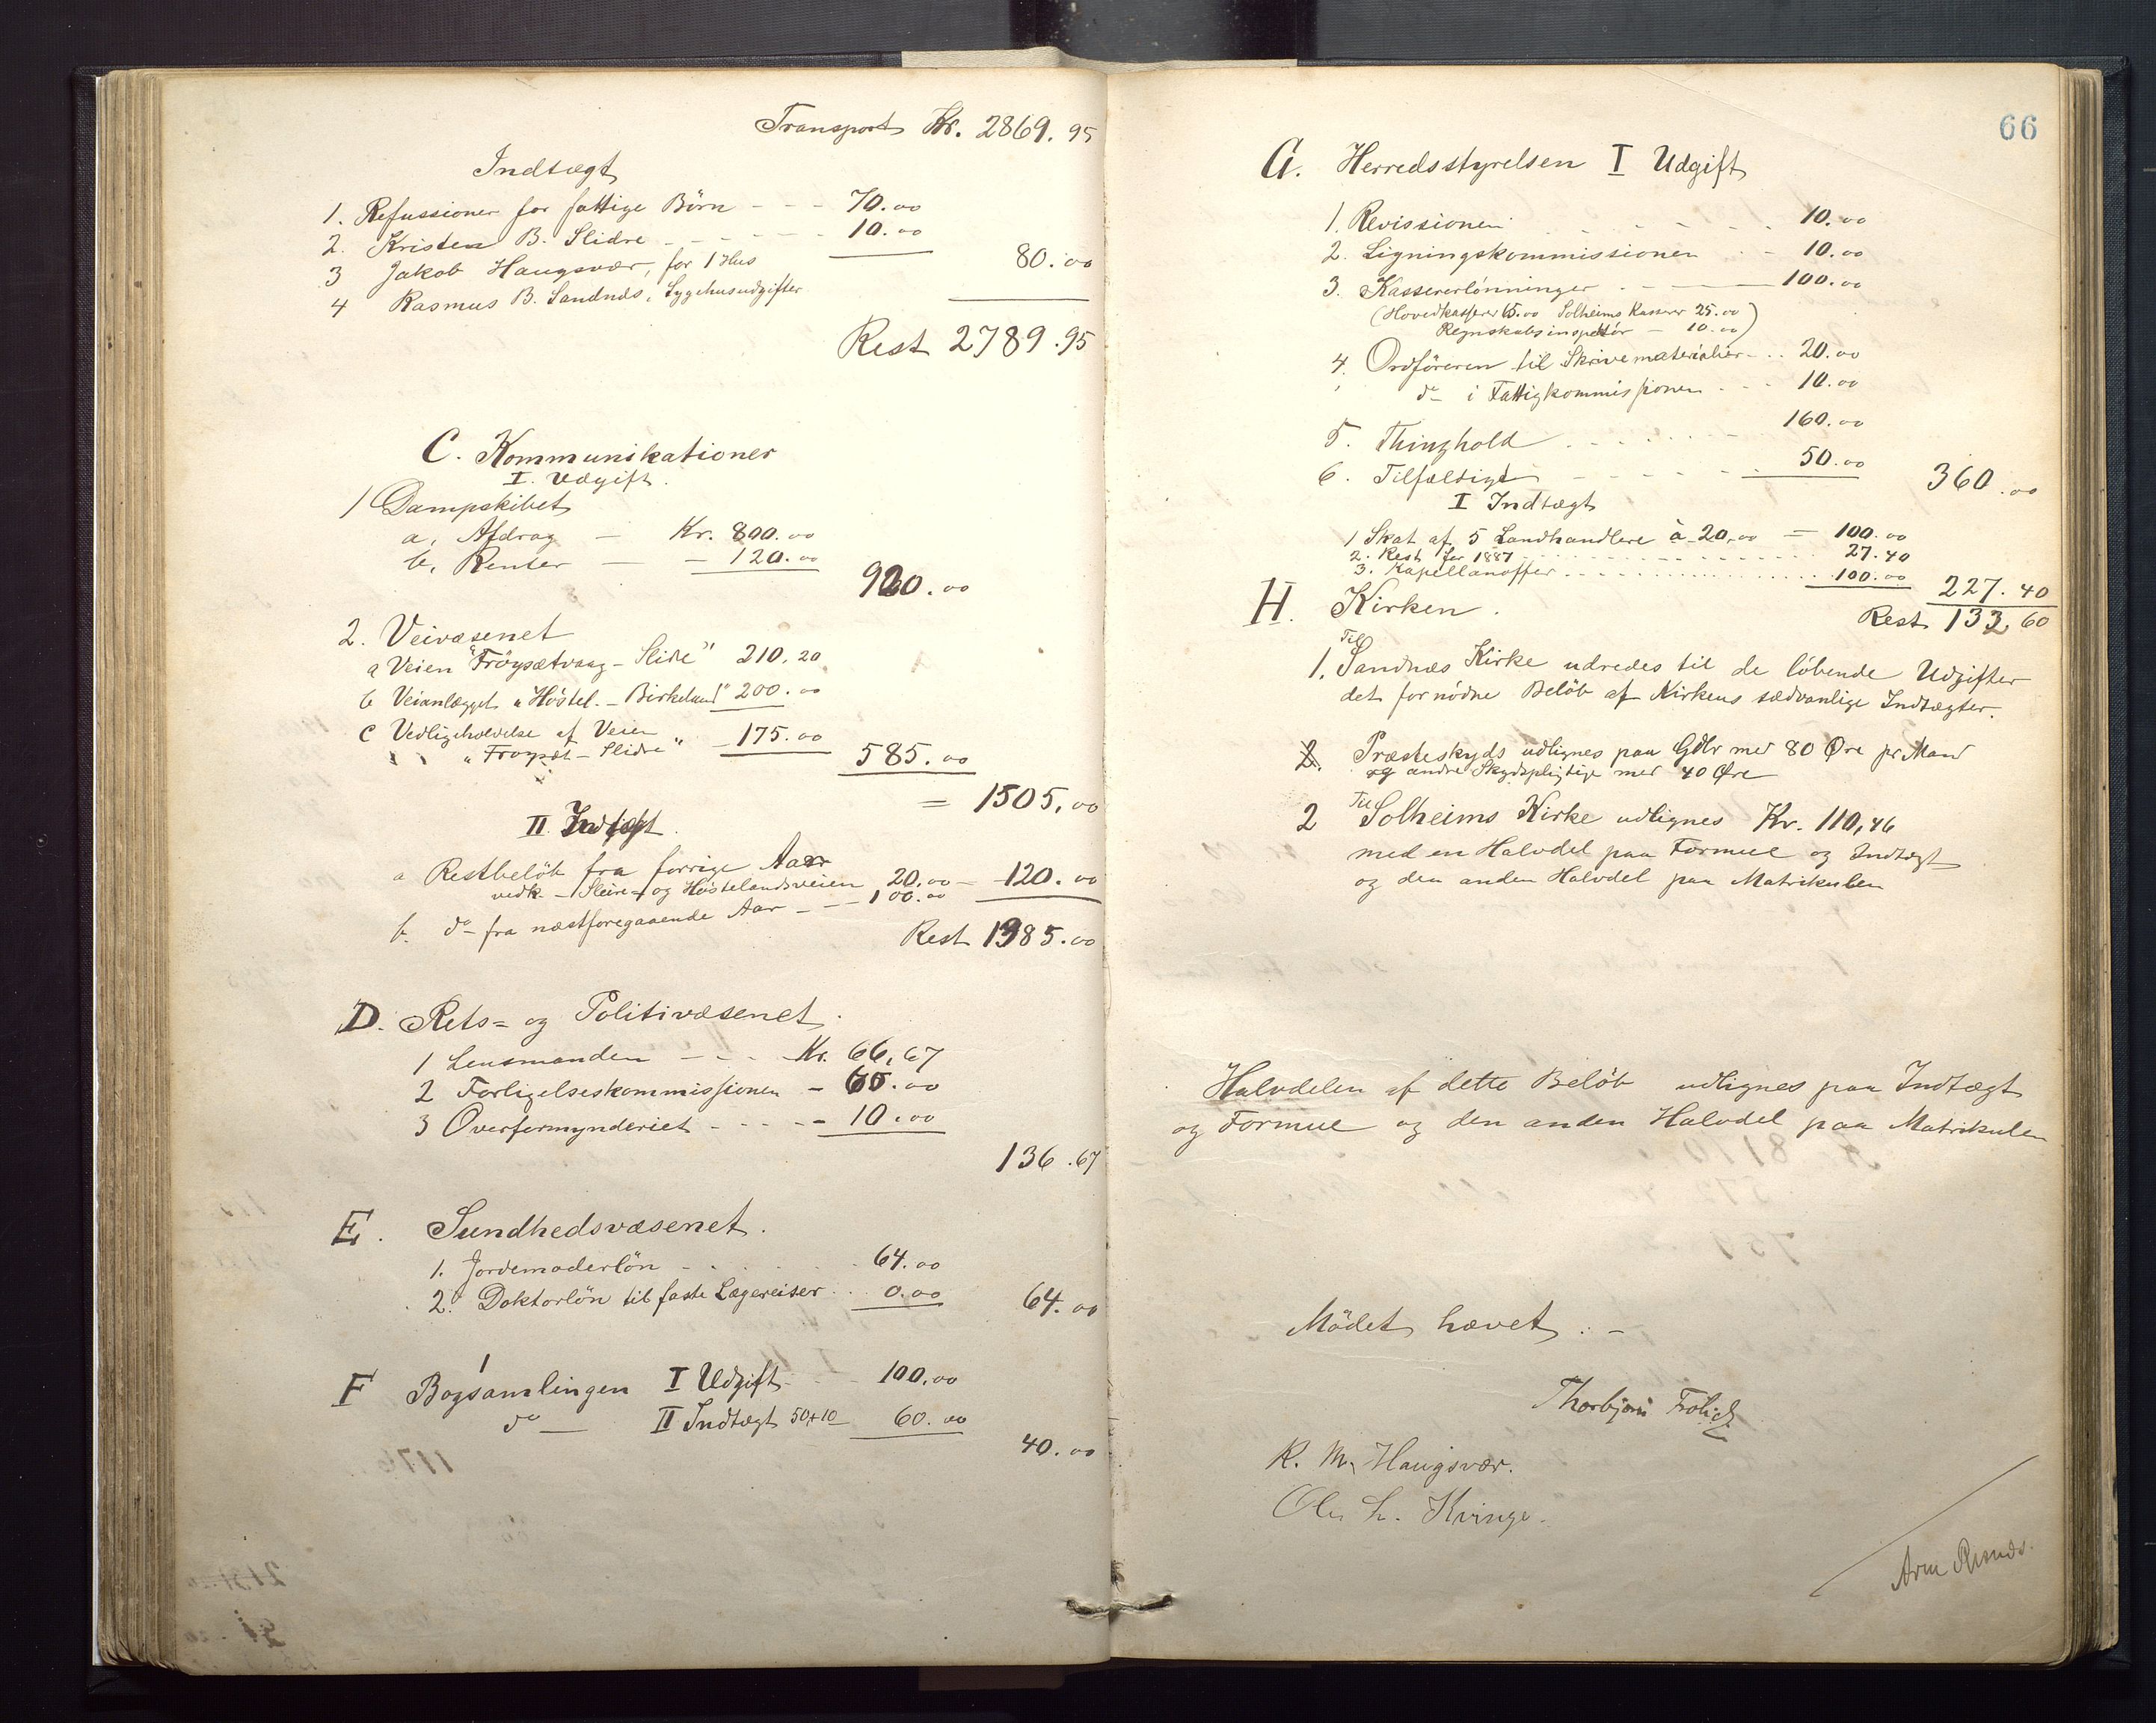 Transport Kr. 2869.95
Indtægt
1. Refussioner for fattige Börn - - - 70.00
2. Kristen B. Slidre - - - - - - 10.00
80.00
3 Jakob Haugsvær, for 1 Hus
4 Rasmus B. Sandnæs, Sygehusudgifter
Rest 2789.95
C. Kommunikationer
I. Udgift.
1 Dampskibet
a, Afdrag — Kr. 800.00
b, Renter — - 120.00
920.00
2. Veivæsenet
a Veien "Fröysætvaag - Slire" 210.20
b Veianlægget "Höstel. - Birkeland" 200.00
c Vedligeholdelse af Veien
"Fröyset - Slidre" - 175.00
585.00
= 1505.00
II Indtægt.
a Restbelöb fra forrige Aar
vedk. - Sleire- og Höstelandsveien 20.00 - 120.00
b. do fra næstforegaaende Aar - - - 100.00
Rest 1385.00
D. Rets= og Politivæsenet.
1 Lensmanden - - - Kr. 66,67
2 Forligelseskommissionen - 60.00
3 Overformynderiet - - - - - 10.00
136.67
E. Sundhedsvæsenet.
1. Jordemoderlön - . . . . . 64.00
2. Doktorlön til faste Lægereiser . . 0.00
64.00
F Bogsamlingen I Udgift - . - 100.00
do — II Indtægt 50+10 60.00
40.00
66
G. Herredsstyrelsen I Udgift
1. Revissionen . . - - . . 10.00
2. Ligningskommissionen . - 10.00
3. Kassererlönninger . - — 100.00
(Hovedkasserer 65.00 Solheims Kasserer 25.00
Regnskabsinspektör — 10.00)
4. Ordföreren til Skrivematerialier - . . 20.00
do i Fattigkommissionen . - - 10.00
5. Thinghold . . - - . . - 160.00
6. Tilfældigt - - - - - . 50.00
360.00
I Indtægt
1 Skat af 5 Landhandlere à 20.00 = 100.00
2. Rest for 1887 . . . . . . . . 27.40
3. Kapellanoffer . . . . . . . . 100.00
227.40
H. Kirken.
Rest 132,60
1. Til Sandnæs Kirke udredes til de löbende Udgifter
det fornödne Belöb af Kirkens sædvanlige Indtægter.
2. Præsteskyds udlignes paa Gdbr med 80 Øre pr. Mand
og andre Skydspligtige med 40 Øre
2 Til Solheims Kirke udlignes Kr. 110,46
med en Halvdel paa Formue og Indtægt
og den anden Halvdel paa Matrikulen
Halvdelen af dette Belöb udlignes paa Indtægt
og Formue og den anden Halvdel paa Matrikulen
Mödet hævet. -
Thorbjörn Frölich
R. M. Haugsvær.
Ole L. Kvinge.